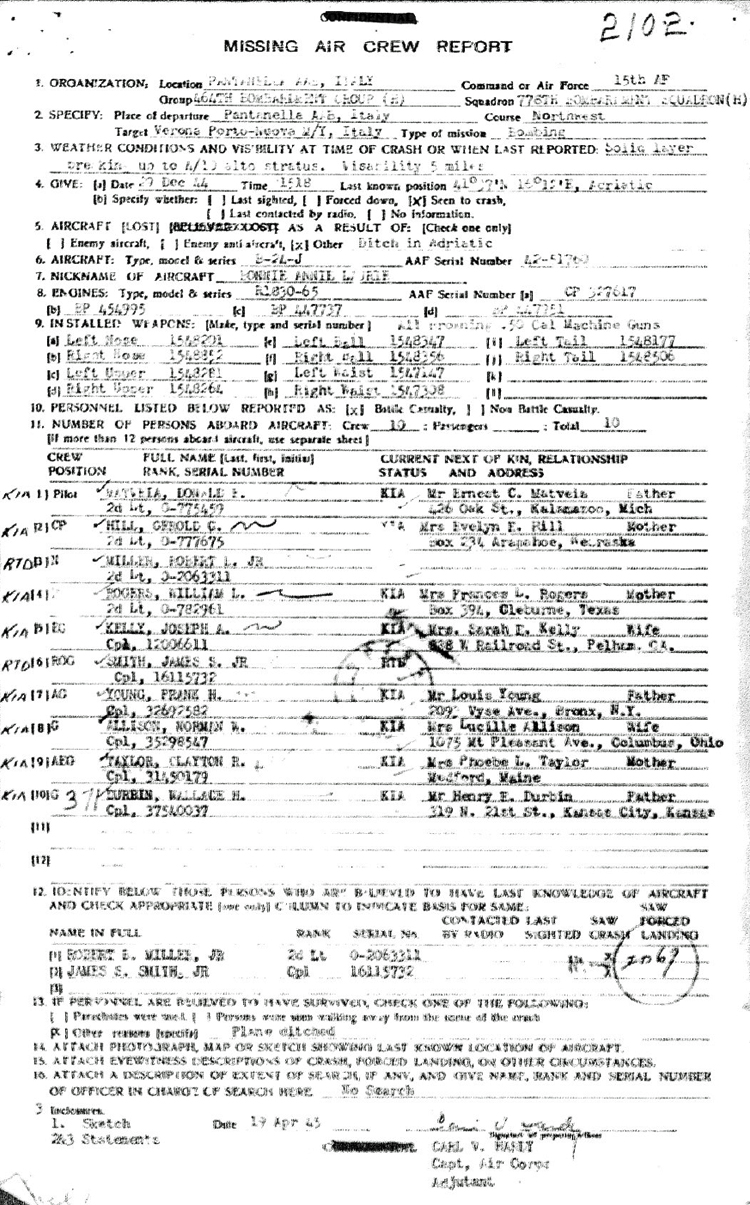 CONFIDENTIAL
2102
MISSING AIR CREW REPORT
1. ORGANIZATION: Location PANTANELLA A/B, ITALY Command or Air Force 15th AF
Group 464TH BOMBARDMENT GROUP (H) Squadron 778TH BOMBARDMENT SQUADRON (H)
2. SPECIFY: Place of departure Pantanella A/B, Italy Course Northwest
Target Verona Porto-Nuova M/Y, Italy Type of mission Bombing
3. WEATHER CONDITIONS AND VISIBILITY AT TIME OF CRASH OR WHEN LAST REPORTED: Solid layer
breaking up to 4/10 alto stratus. Visability 5 miles
4. GIVE: [a] Date Dec 44 Time 1518 Last known position Adriatic
[b] Specify whether: [ ] Last sighted, [ ] Forced down, [X] Seen to crash,
[ ] Last contacted by radio, [ ] No information.
5. AIRCRAFT [LOST] AS A RESULT OF: [Check one only]
[ ] Enemy aircraft, [ ] Enemy anti aircraft, [x] Other Ditch in Adriatic
6. AIRCRAFT: Type, model & series B-24-J AAF Serial Number
7. NICKNAME OF AIRCRAFT BONNIE ANNIE LAURIE
8. ENGINES: Type, model & series R1830-65 AAF Serial Number [a] CP 327617
[b] BP 454995 [c] BP 447737 [d] BP 447351
9. INSTALLED WEAPONS: [Make, type and serial number] All Browning .50 Cal Machine Guns
[a] Left Nose 1548291 [e] Left Ball 1548347 [i] Left Tail 1548177
[b] Right Nose 1548352 [f] Right Ball 1548356 [j] Right Tail 1548506
[c] Left Upper 1548281 [g] Left Waist 1547147 [k]
[d] Right Upper 1548264 [h] Right Waist 1547308 [l]
10. PERSONNEL LISTED BELOW REPORTED AS: [x] Battle Casualty, [ ] Non Battle Casualty.
11. NUMBER OF PERSONS ABOARD AIRCRAFT: Crew 10 ; Passengers ; Total 10
[if more than 12 persons aboard aircraft, use separate sheet]
CREW FULL NAME [Last, first, initial] CURRENT NEXT OF KIN, RELATIONSHIP
POSITION RANK, SERIAL NUMBER STATUS AND ADDRESS
KIA [1] Pilot MATVEIA, DONALD E. KIA Mr Ernest C. Matveia Father
2d Lt, O-775459 426 Oak St., Kalamazoo, Mich
KIA [2] CP HILL, GEROLD C. KIA Mrs Evelyn E. Hill Mother
2d Lt, O-777675 Box 234 Arapahoe, Nebraska
RTD [3] N MILLER, ROBERT L. JR
2d Lt, O-2063311
KIA [4] ROGERS, WILLIAM L. KIA Mrs Frances L. Rogers Mother
2d Lt, O-782961 Box 394, Cleburne, Texas
KIA [5] EG KELLY, JOSEPH A. KIA Mrs. Sarah E. Kelly Wife
Cpl, 12006611 W Railroad St., Pelham, GA.
RTD [6] ROG SMITH, JAMES S. JR RTD
Cpl, 16115732
KIA [7] AG YOUNG, FRANK H. KIA Mr Louis Young Father
Cpl, 32692582 2093 Vyse Ave., Bronx, N.Y.
KIA [8] G ALLISON, NORMEN W. KIA Mrs Lucille Allison Wife
Cpl, 35298547 1075 Mt Pleasant Ave., Columbus, Ohio
KIA [9] AEG TAYLOR, CLAYTON R. KIA Mrs Phoebe L. Taylor Mother
Cpl, 31450179 Medford, Maine
KIA [10] G 37 DURBIN, WALLACE H. KIA Mr Henry E. Durbin Father
Cpl, 37540037 319 N. 21st St., Kansas City, Kansas
[11]
[12]
12. IDENTIFY BELOW THOSE PERSONS WHO ARE BELIEVED TO HAVE LAST KNOWLEDGE OF AIRCRAFT
AND CHECK APPROPRIATE [one only] COLUMN TO INDICATE BASIS FOR SAME:
CONTACTED LAST SAW SAW FORCED
NAME IN FULL RANK SERIAL No. BY RADIO SIGHTED CRASH LANDING
[1] ROBERT L. MILLER, JR 2d Lt O-2063311 X
[2] JAMES S. SMITH, JR Cpl 16115732 X
[3]
13. IF PERSONNEL ARE BELIEVED TO HAVE SURVIVED, CHECK ONE OF THE FOLLOWING:
[ ] Parachutes were used, [ ] Persons were seen walking away from the scene of the crash
[X] Other reasons [specify] Plane ditched
14. ATTACH PHOTOGRAPH, MAP OR SKETCH SHOWING LAST KNOWN LOCATION OF AIRCRAFT.
15. ATTACH EYEWITNESS DESCRIPTIONS OF CRASH, FORCED LANDING, OR OTHER CIRCUMSTANCES.
16. ATTACH A DESCRIPTION OF EXTENT OF SEARCH, IF ANY, AND GIVE NAME, RANK AND SERIAL NUMBER
OF OFFICER IN CHARGE OF SEARCH HERE No Search
3 Inclosures.
1. Sketch Date 19 Apr 45
2&3 Statements Signature of preparing officer
CARL V. HASLY
Capt, Air Corps
Adjutant